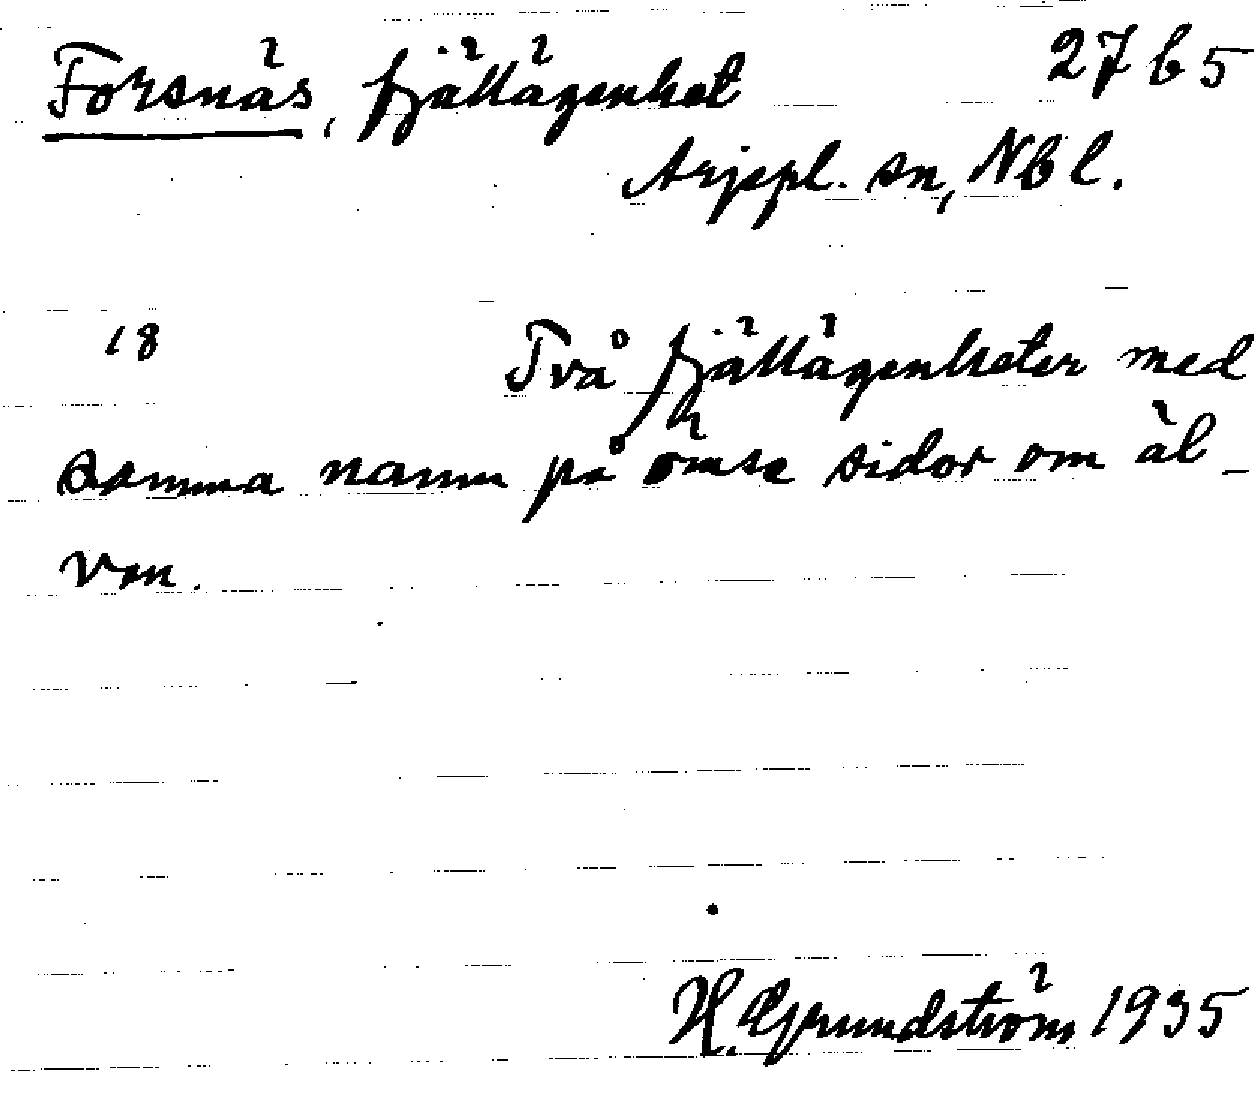 Forsnäs, fjällägenhet 27 b 5
Arjepl. sn, Nb l.
18 Två fjällägenheter med
samma namn på ömse sidor om äl-
ven.
H. Grundström 1935